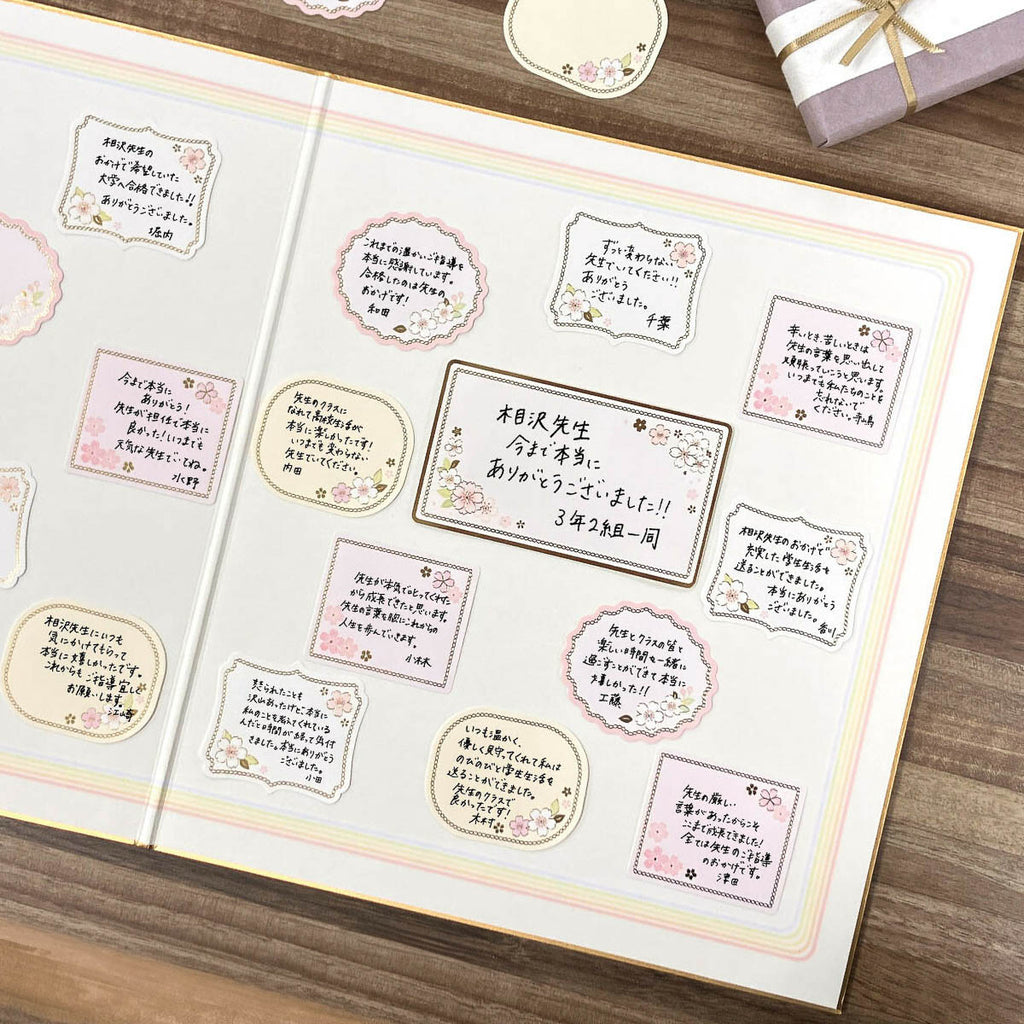 相沢先生の
おかげで希望していた
大学へ合格できました!!
ありがとうございました。
堀内
今まで本当に
ありがとう!
先生が担任で本当に
良かった!いつまでも
元気な先生でいてね。
水野
相沢先生にいつも
気にかけてもらって
本当に嬉しかったです。
これからもご指導宜しく
お願いします。
江崎
これまでの温かいご指導を
本当に感謝しています。
合格したのは先生の
おかげです!
和田
ずっと変わらない
先生でいてください!!
ありがとう
ございました。
千葉
辛いとき、苦しいときは
先生の言葉を思い出して
頑張っていこうと思います。
いつまでも私たちのことを
忘れないで
ください。
先生のクラスに
なれて高校生活が
本当に楽しかったです!
いつまでも変わらない
先生でいてください。
内田
相沢先生
今まで本当に
ありがとうございました!!
3年2組一同
相沢先生のおかげで
充実した学生生活を
送ることができました。
本当にありがとう
ございました。
先生が本気でぶつかってくれた
から成長できたと思います。
先生の言葉を胸にこれからの
人生を歩んでいきます。
小林
先生とクラスの皆と
楽しい時間を一緒に
過ごすことができて本当に
嬉しかった!!
工藤
怒られたことも
沢山あったけど本当に
私のことを考えてくれている
んだと時間が経って気付
きました。本当にありがとう
ございました。
小田
いつも温かく、
優しく見守ってくれて私は
のびのびと学生生活を
送ることができました。
先生のクラスで
良かったです!
木村
先生の厳しい
言葉があったからこそ
ここまで成長できました!
全ては先生のご指導
のおかげです。
津田